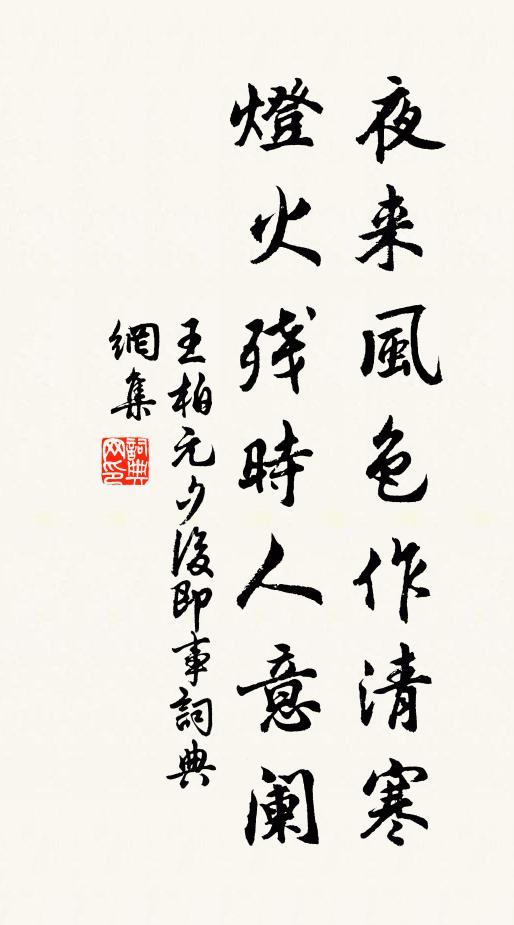 夜来風色作清寒
燈火残時人意阑
王柏元夕後即事詞典
網集
詞典網印